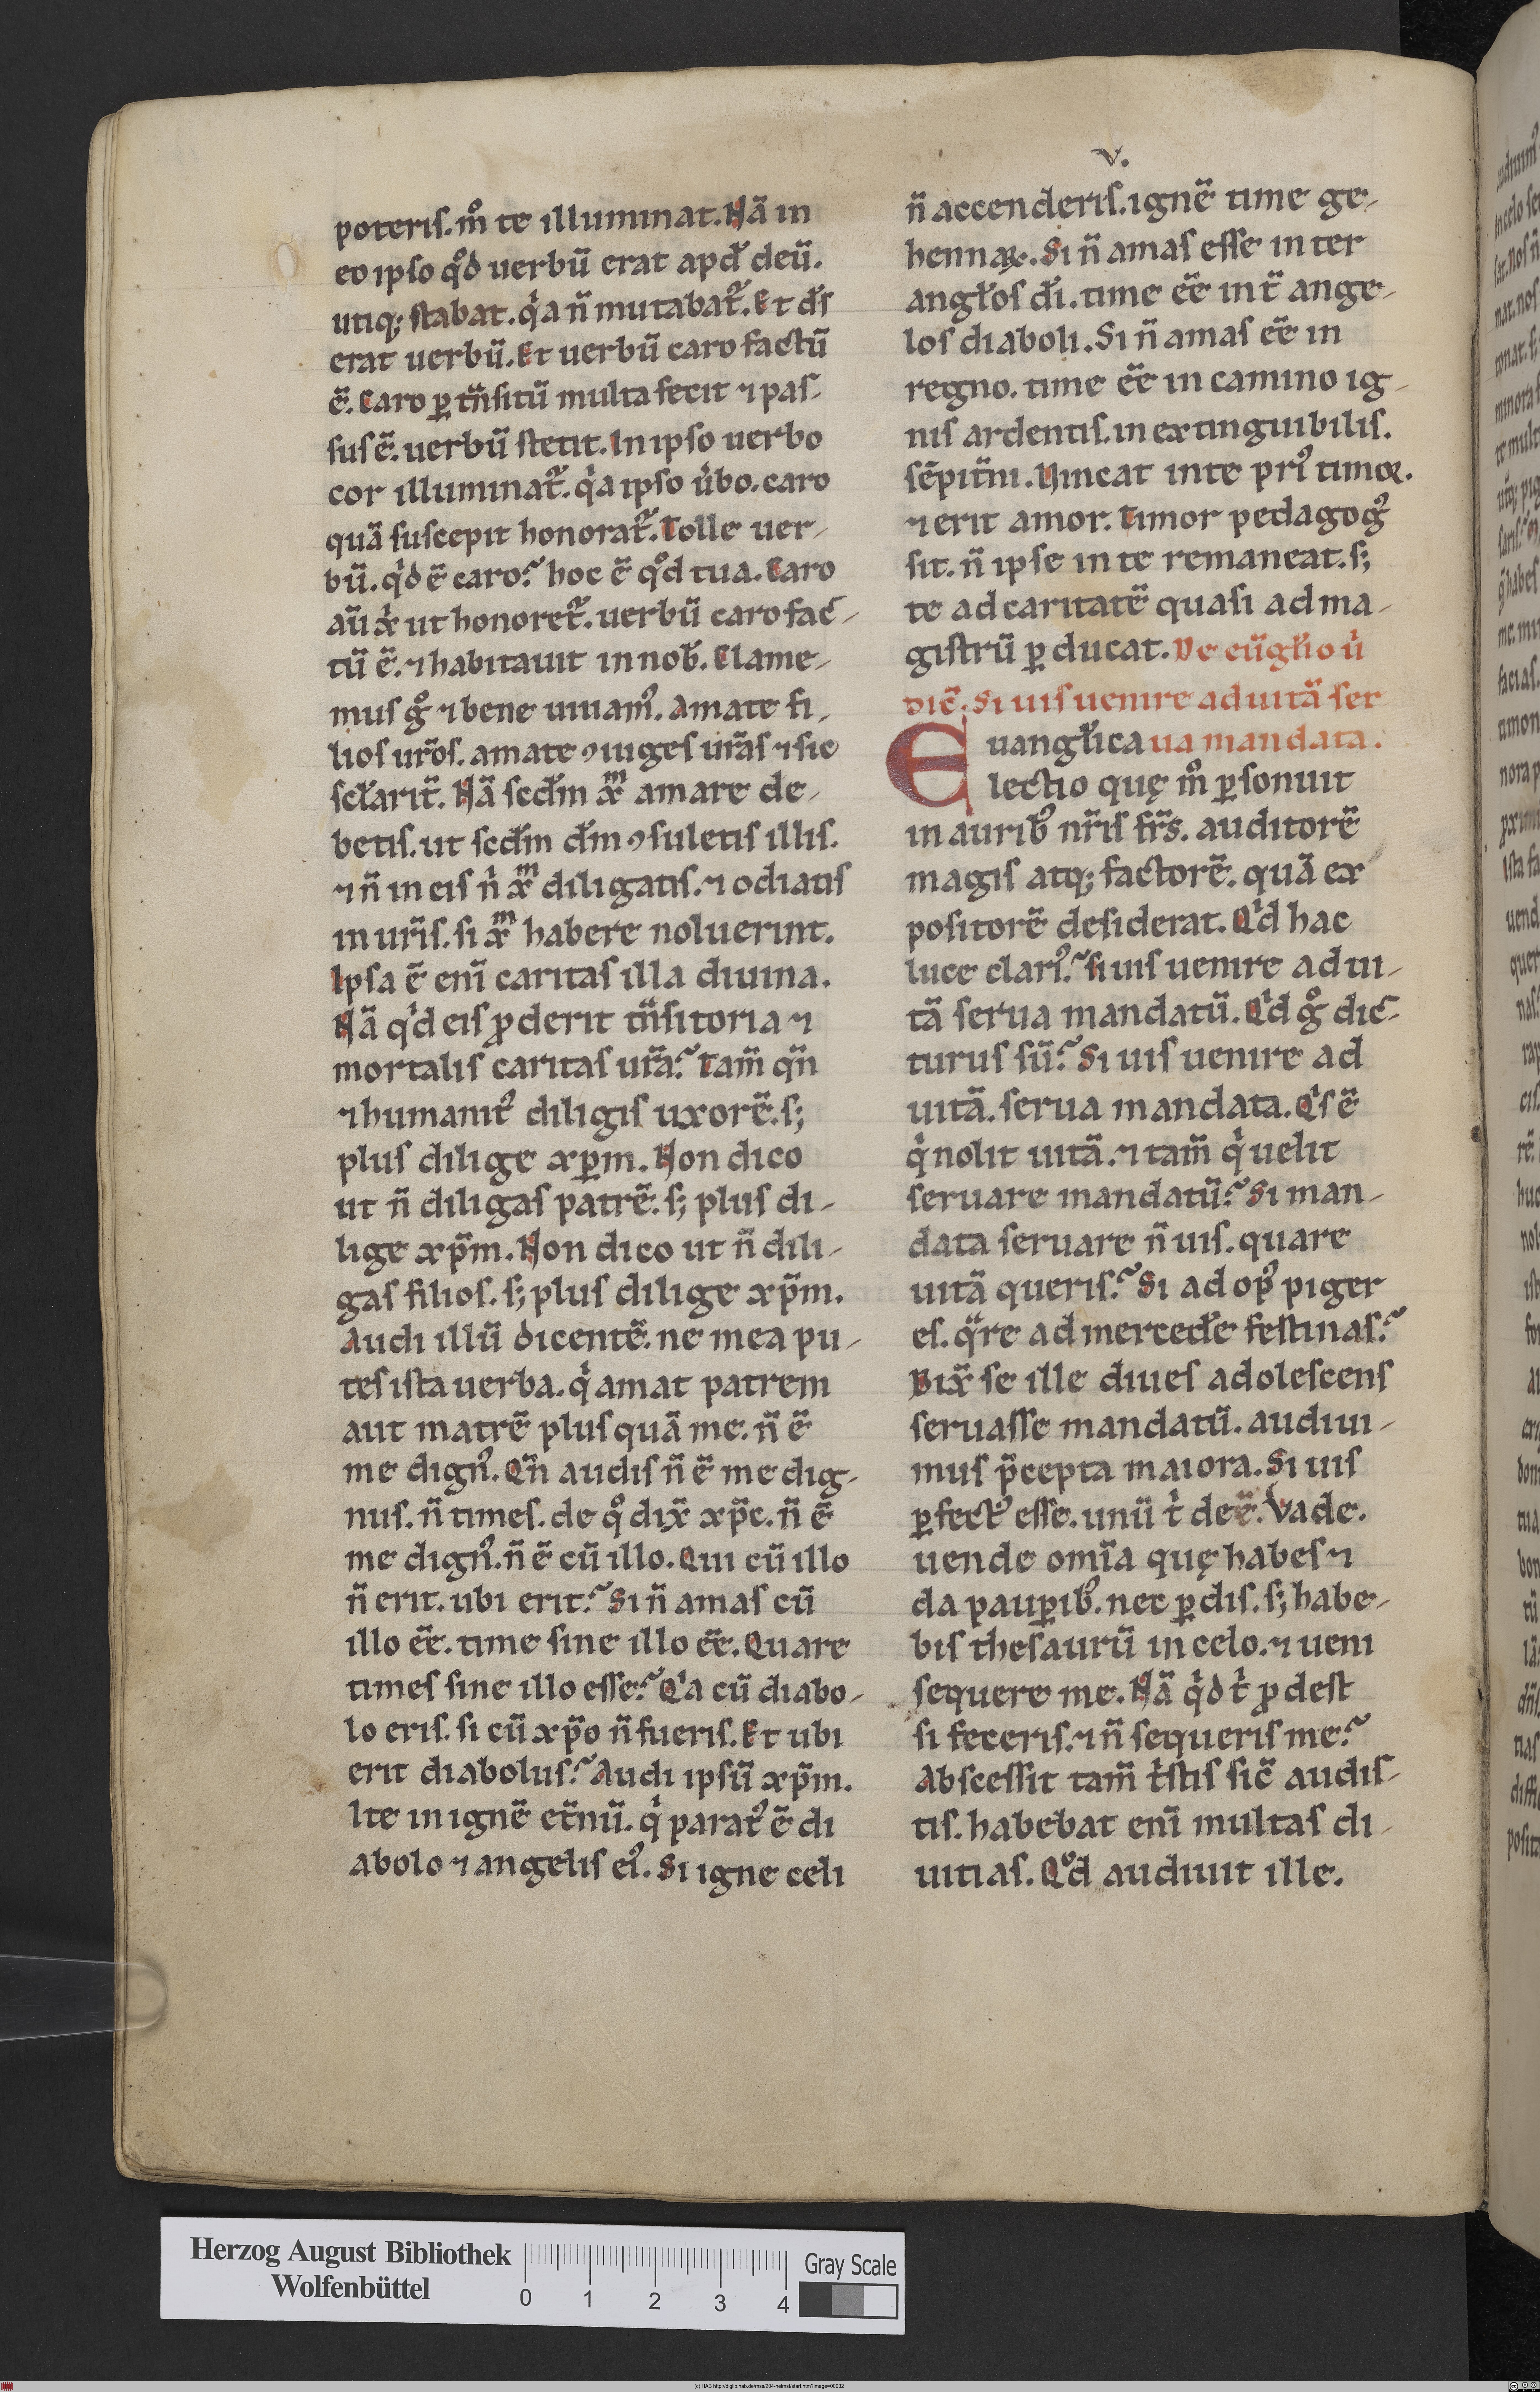 v.
poteris. mͦ te illuminat. Nā in
eo ipso qͦd uerbū erat apđ deū.
utiq; stabat. qͥa n̄ mutabat᷑. Et dꝰs
erat uerbū. Et uerbū caro factū
ē. Caro ꝑ tn̄sitū multa fecit ⁊ pas-
sus ē. uerbū stetit. In ipso uerbo
cor illuminat᷑. qͥa ipso ùbo. caro
quā suscepit honorat᷑. Tolle uer-
bū. qͥd ē caro? hoc ē qͦd tua. Caro
aū xp̄i ut honoret᷑. uerbū caro fac-
tū ē. ⁊ habitauit in nob̄. Clame-
mus gͦ ⁊ bene uiuamꝰ. Amate fi-
lios ur̄os. amate ꝯiuges ur̄as ⁊ sic
sctarit̄. Nā scdm xͫ amare de-
betis. ut scdm dm̄ ꝯsuletis illis.
⁊ n̄ in eis n̄ xͫ diligatis. ⁊ odiatis
in ur̄is. si xͫ habere noluerint.
Ipsa ē enī caritas illa diuina.
Nā qͥd eis ꝓderit tn̄sitoria ⁊
mortalis caritas ur̄a? Tam̄ qn̄
⁊ humanitꝰ diligis uxorē. s;
plus dilige xp̄m. Non dico
ut n̄ diligas patrē. s; plus di-
lige xp̄m. Non dico ut n̄ dili-
gas filios. s; plus dilige xp̄m.
Audi illū dicentē. ne mea pu-
tes ista uerba. qͥ amat patrem
aut matrē plus quā me. n̄ ē
me dignꝰ. Qn̄ audis n̄ ē me dig-
nus. n̄ times. de qͦ dix̄ xp̄c. n̄ ē
me dignꝰ. n̄ ē cū illo. Qui cū illo
n̄ erit. ubi erit? Si n̄ amas cū
illo eē. time sine illo eē. Quare
times sine illo esse? Qͥa cū diabo-
lo eris. si cū xp̄o n̄ fueris. Et ubi
erit diabolus? Audi ipsū xp̄m.
Ite in ignē et̄nū. qͥ paratꝰ ē di
abolo ⁊ angelis eiꝰ. Si igne celi
n̄ accenderis. ignē time ge-
hennaꝝ. Si n̄ amas esse inter
angłos dī. time eē int̄ ange-
los diaboli. Si n̄ amas eē in
regno. time eē in camino ig-
nis ardentis. inextinguibilis.
sēpit̄ni. Uincat in te prꝰ timor.
⁊ erit amor. Timor pedagogꝰ
sit. n̄ ipse in te remaneat. s;
te ad caritatē quasi ad ma-
gistrū ꝑducat. De eūgłio ù
dic̄. Si uis uenire ad uitā ser
Euangłica ua mandata.
lectio quę mͦ ꝑsonuit
in auribꝰ nr̄is fr̄s. auditorē
magis atq; factorē. quā ex
positorē desiderat. Qͥd hac
luce clarꝰ? si uis uenire ad ui-
tā serua mandatū. Qͥd gͦ dic-
turus sū? Si uis uenire ad
uitā. serua mandata. Qͥs ē
qͥ nolit uitā. ⁊ tam̄ qͥ uelit
seruare mandatū? Si man-
data seruare n̄ uis. quare
uitā queris? Si ad opꝰ piger
es. qͣre ad mercedē festinas?
Dix̄ se ille diues adolescens
seruasse mandatū. audiui-
mus p̄cepta maiora. Si uis
ꝑfectꝰ esse. unū tͥ deē. Vade.
uende omīa quę habes ⁊
da pauꝑibꝰ. nec ꝑdis. s; habe-
bis thesaurū in celo. ⁊ ueni
sequere me. Nā qͥd tͥ ꝓdest
si feceris. ⁊ n̄ sequeris me?
Abscessit tam̄ tͥstis sic̄ audis-
tis. habebat enī multas di-
uitias. Qͦd audiuit ille.
Herzog August Bibliothek
Wolfenbüttel
0 1 2 3 4
Gray Scale
(c) HAB http://diglib.hab.de/mss/204-helmst/start.htm?image=00032